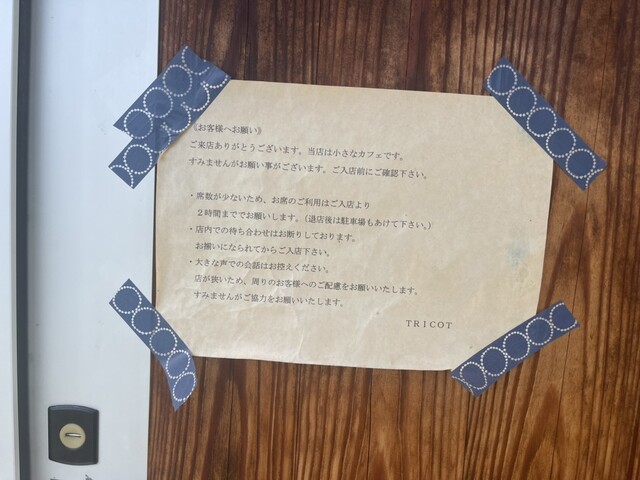 《お客様へお願い》
ご来店ありがとうございます。当店は小さなカフェです。
すみませんがお願い事がございます。ご入店前にご確認下さい。
・席数が少ないため、お席のご利用はご入店より
２時間まででお願いします。（退店後は駐車場もあけて下さい。）
・店内での待ち合わせはお断りしております。
お揃いになられてからご入店下さい。
・大きな声での会話はお控えください。
店が狭いため、周りのお客様へのご配慮をお願いいたします。
すみませんがご協力をお願いいたします。
ＴＲＩＣＯＴ